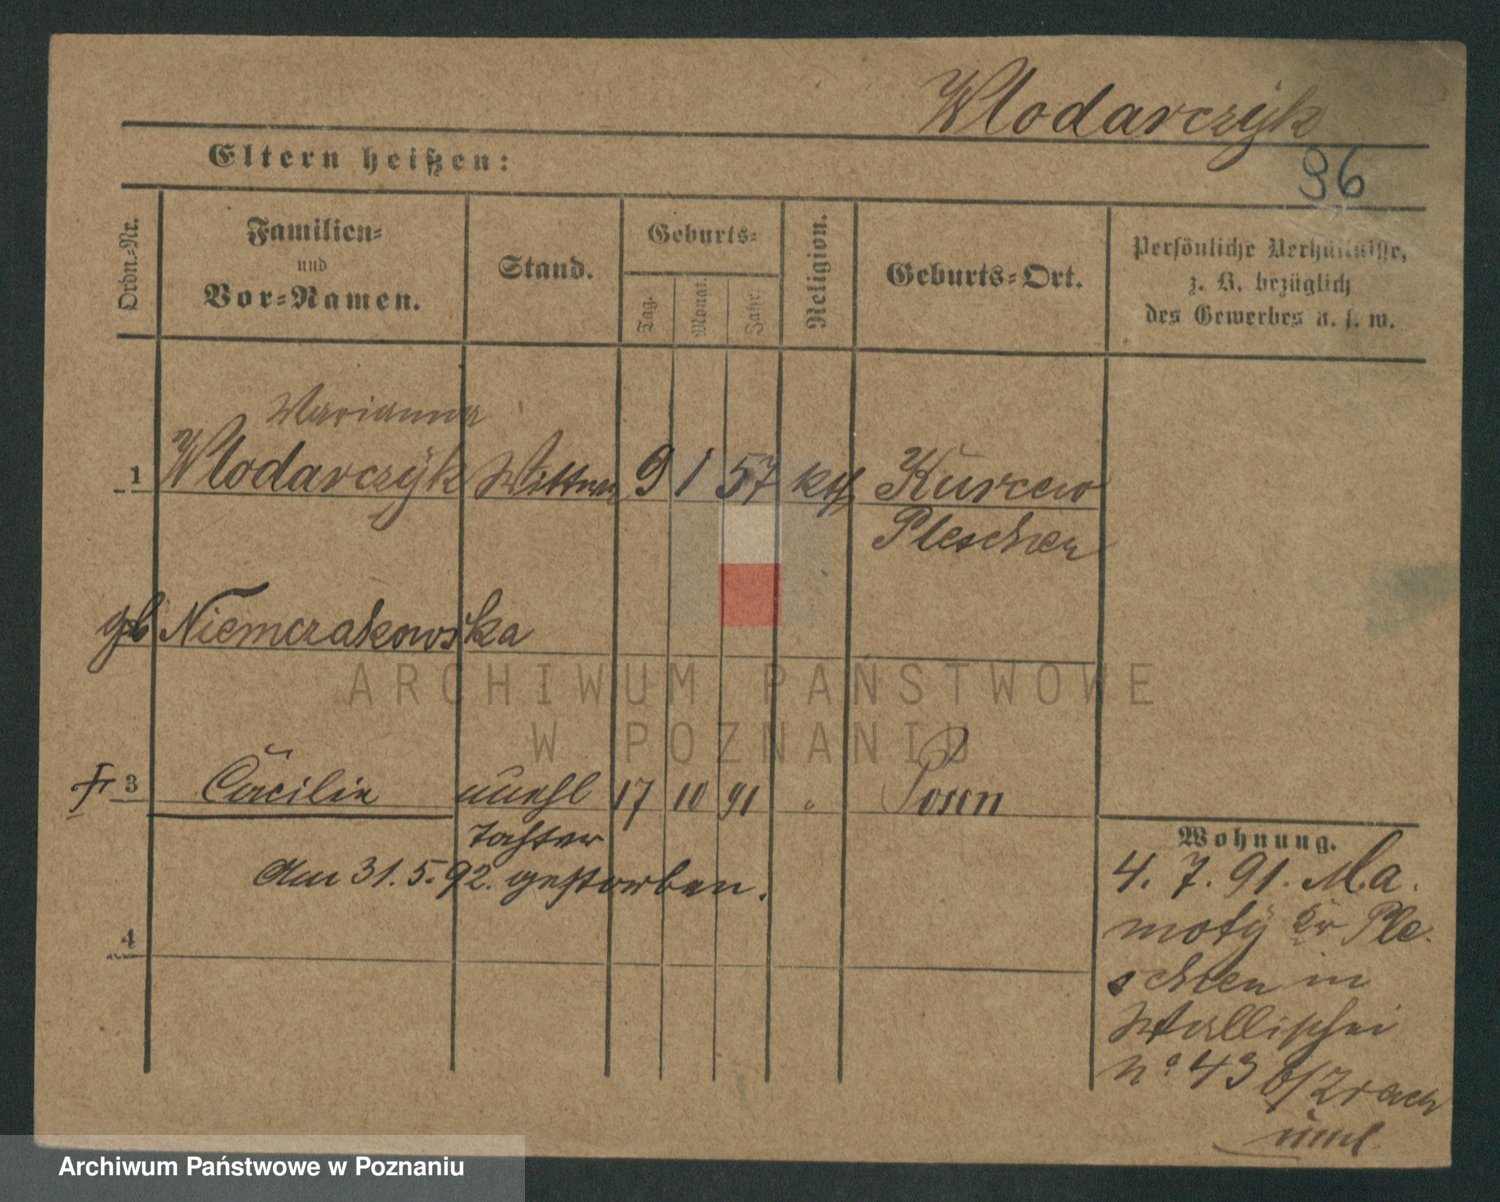 Wlodarczyk
96
Eltern heißen:
Ordn.-Nr.
Familien-
und
Vor-Namen.
Stand.
Geburts-
Tag.
Monat.
Jahr.
Religion.
Geburts-Ort.
Persönliche Verhältnisse,
z. B. bezüglich
des Gewerbes u. s. w.
Marianna
1 Wlodarczyk Wittwe 9 1 57 kth Kurcew
Pleschen
gb Niemczakowska
ARCHIWUM PAŃSTWOWE
W POZNANIU
3 Cäcilie unehl 17 10 91 " Posen
Tochter
Am 31.5.92. gestorben.
4
Wohnung.
4. 7. 91. Ma
moty Kr Ple
schen in
Wallischei
No 43 b/
Archiwum Państwowe w Poznaniu